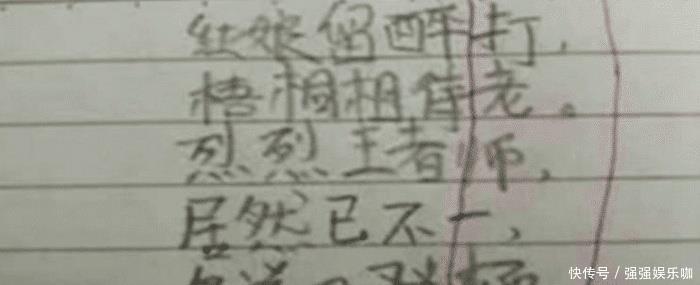 红娘留醉打，
梧桐相待老。
烈烈王者师，
居然已不一、
快传号／强强娱乐咖